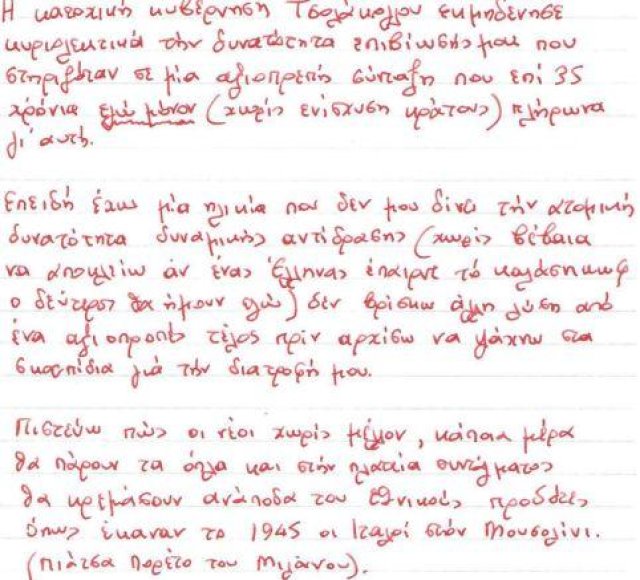 Η κατοχική κυβέρνηση Τσολάκογλου εκμηδένησε
κυριολεκτικά την δυνατότητα επιβίωσής μου που
στηριζόταν σε μία αξιοπρεπή σύνταξη που επί 35
χρόνια εγώ μόνον (χωρίς ενίσχυση κράτους) πλήρωνα
γι' αυτή.
Επειδή έχω μία ηλικία που δεν μου δίνει την ατομική
δυνατότητα δυναμικής αντίδρασης (χωρίς βέβαια
να αποκλείω άν ένας Έλληνας έπαιρνε το καλάσνικωφ
ο δεύτερος θα ήμουν εγώ) δέν βρίσκω άλλη λύση από
ένα αξιοπρεπές τέλος πρίν αρχίσω να ψάχνω στα
σκουπίδια γιά την διατροφή μου.
Πιστεύω πώς οι νέοι χωρίς μέλλον, κάποια μέρα
θα πάρουν τα όπλα και στήν πλατεία συντάγματος
θα κρεμάσουν ανάποδα του εθνικούς προδότες
όπως έκαναν το 1945 οι Ιταλοί στόν Μουσολίνι.
(πιάτσα Πορέτο του Μιλάνου).